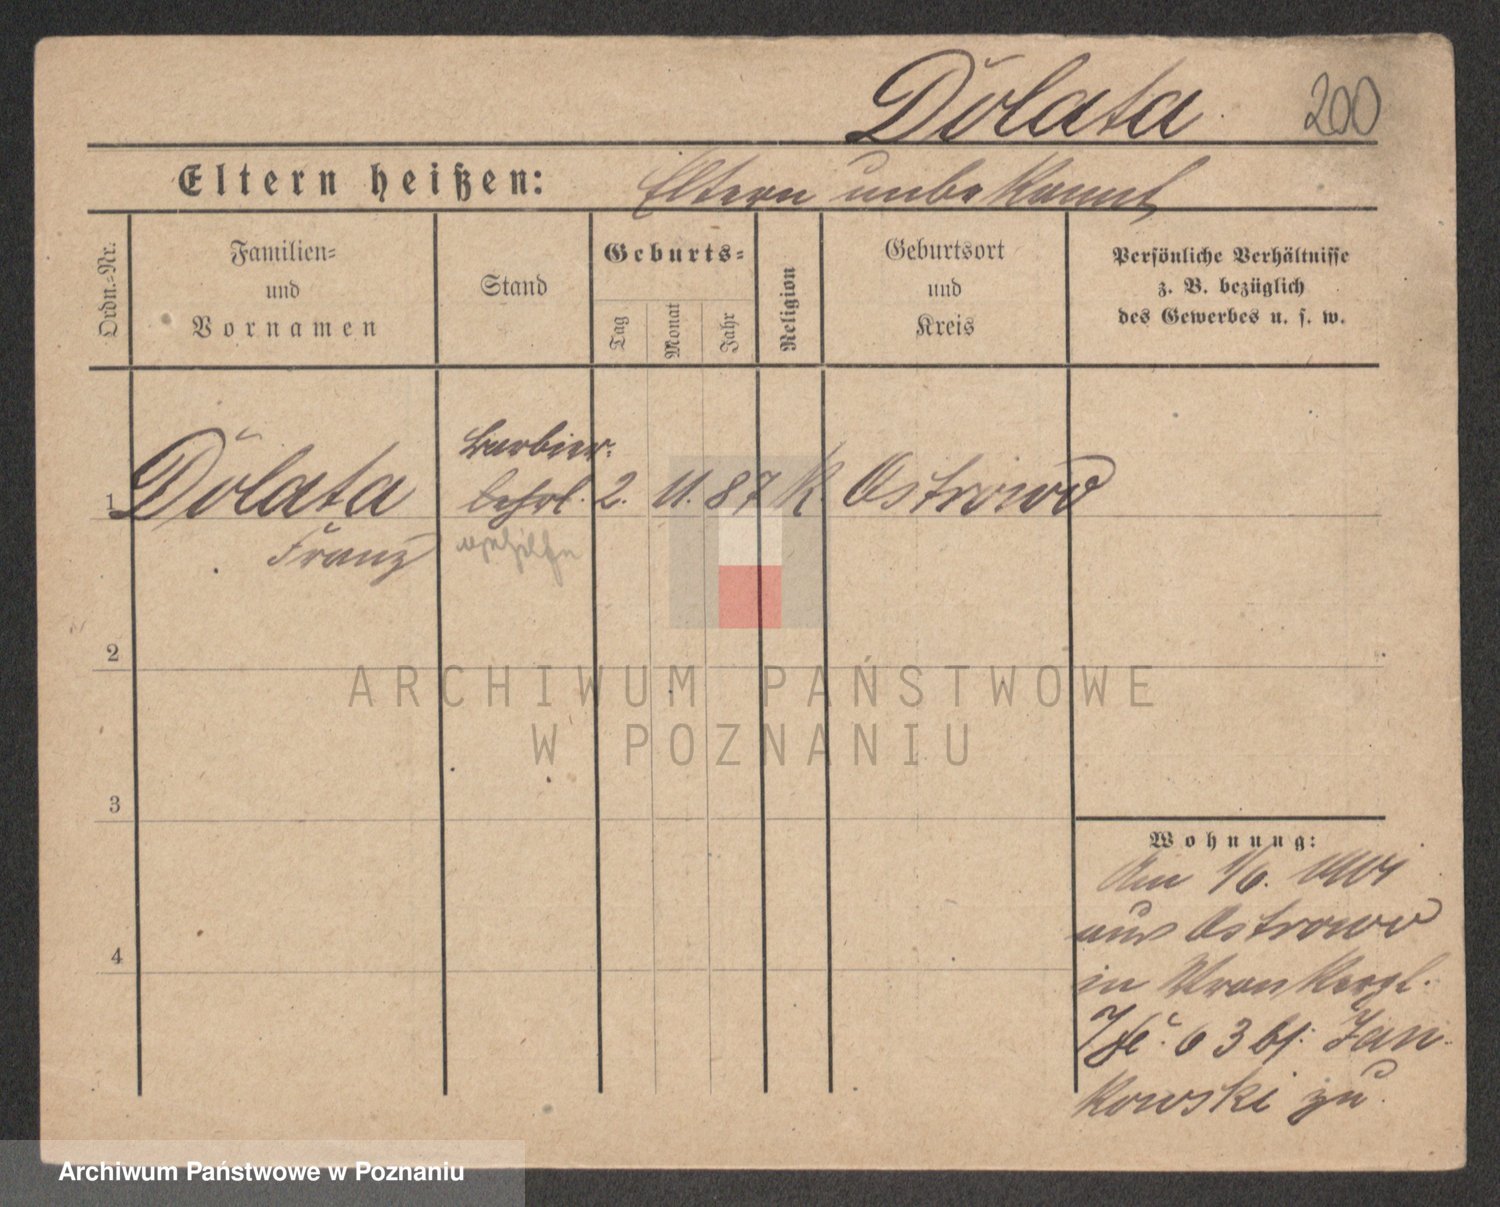 Dolata 200
Eltern heißen: Eltern unbekannt
Ordn.-Nr.
Familien-
und
Vornamen
Stand
Geburts-
Tag
Monat
Jahr
Religion
Geburtsort
und
Kreis
Persönliche Verhältnisse
z. B. bezüglich
des Gewerbes u. s. w.
Barbier-
1 Dolata lehrl. 2. 11. 87 K. Ostrowo
Franz gehilfe
2
ARCHIWUM PAŃSTWOWE
W POZNANIU
3
Wohnung:
Am 1/6. 1904
aus Ostrowo
in
63 bf. Jan-
kowski zu.
4
Archiwum Państwowe w Poznaniu